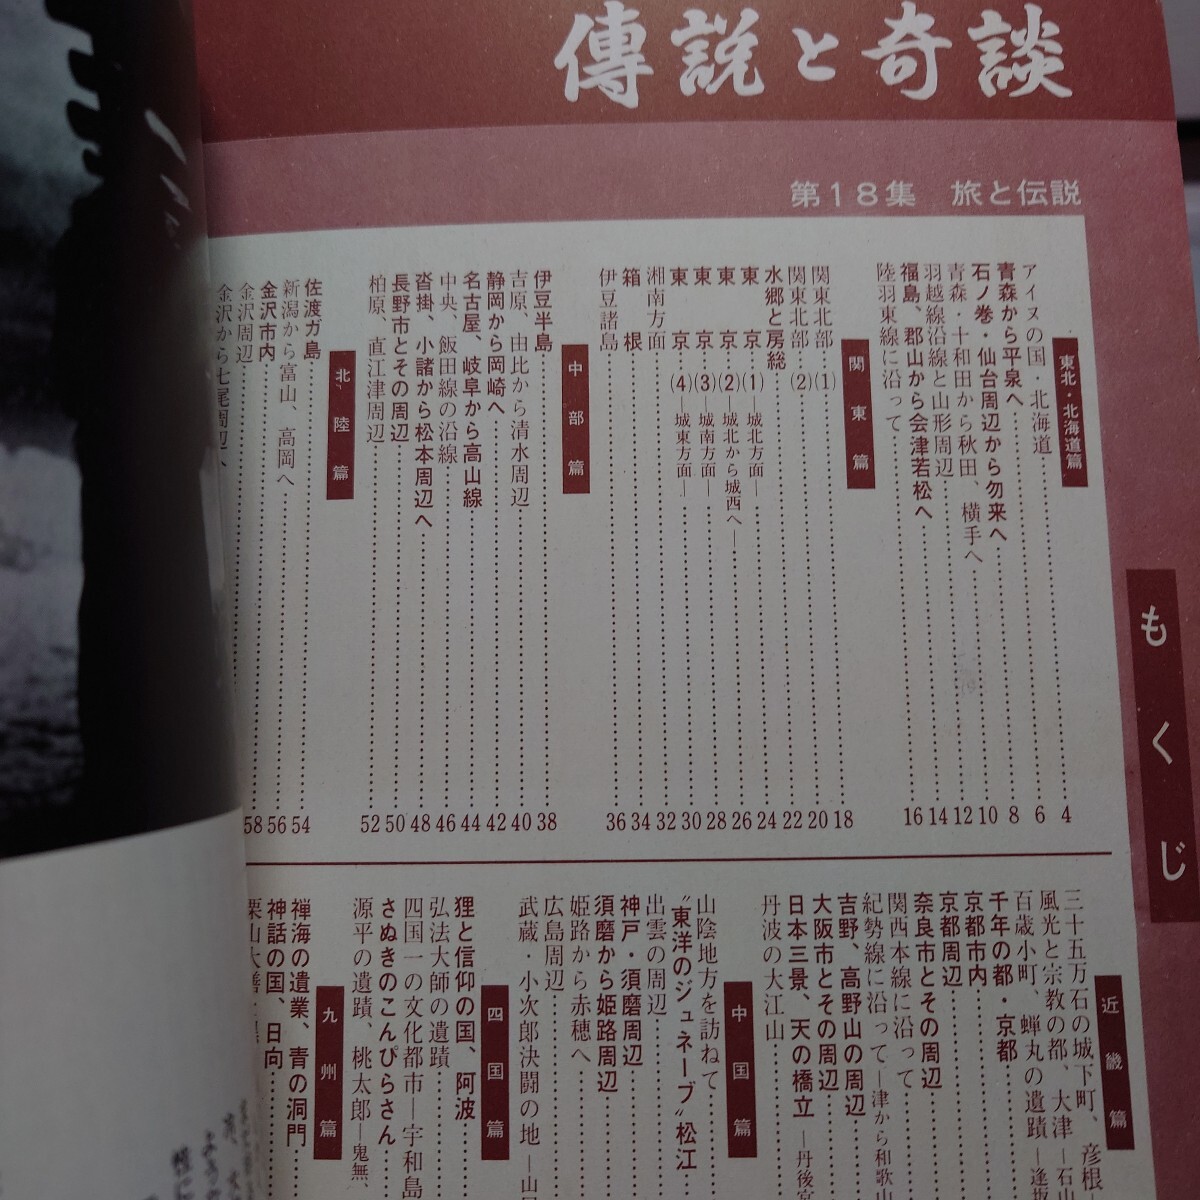 傳説と奇談
第18集 旅と伝説
もくじ
東北・北海道篇
アイヌの国・北海道……4
青森から平泉へ……6
石ノ巻・仙台周辺から勿来へ……8
青森・十和田から秋田、横手へ……10
羽越線沿線と山形周辺……12
福島、郡山から会津若松へ……14
陸羽東線に沿って……16
関東篇
関東北部(1)……18
関東北部(2)……20
水郷と房総……22
東京(1)―城北方面―……24
東京(2)―城北から城西へ―……26
東京(3)―城南方面―……28
東京(4)―城東方面―……30
湘南方面……32
箱根……34
伊豆諸島……36
中部篇
伊豆半島……38
吉原、由比から清水周辺……40
静岡から岡崎へ……42
名古屋、岐阜から高山線……44
中央、飯田線の沿線……46
沓掛、小諸から松本周辺へ……48
長野市とその周辺……50
柏原、直江津周辺……52
北陸篇
佐渡ガ島……54
新潟から富山、高岡へ……56
金沢市内……58
金沢周辺……
金沢から七尾周辺へ
近畿篇
三十五万石の城下町、彦根
風光と宗教の都、大津―石山
百歳小町、蝉丸の遺蹟―逢坂
千年の都・京都
京都市内……
京都周辺……
奈良市とその周辺……
関西本線に沿って……
紀勢線に沿って―津から和歌山
吉野、高野山の周辺……
大阪市とその周辺……
日本三景、天の橋立―丹後宮
丹波の大江山……
中国篇
山陰地方を訪ねて……
〝東洋のジュネーブ〟松江
出雲の周辺……
神戸・須磨周辺……
須磨から姫路周辺……
姫路から赤穂へ……
広島周辺……
武蔵・小次郎決闘の地―山口
四国篇
狸と信仰の国、阿波……
弘法大師の遺蹟……
四国一の文化都市―宇和島
さぬきのこんぴらさん……
源平の遺蹟、桃太郎―鬼無
九州篇
禅海の遺業、青の洞門……
神話の国、日向……
栗山大膳